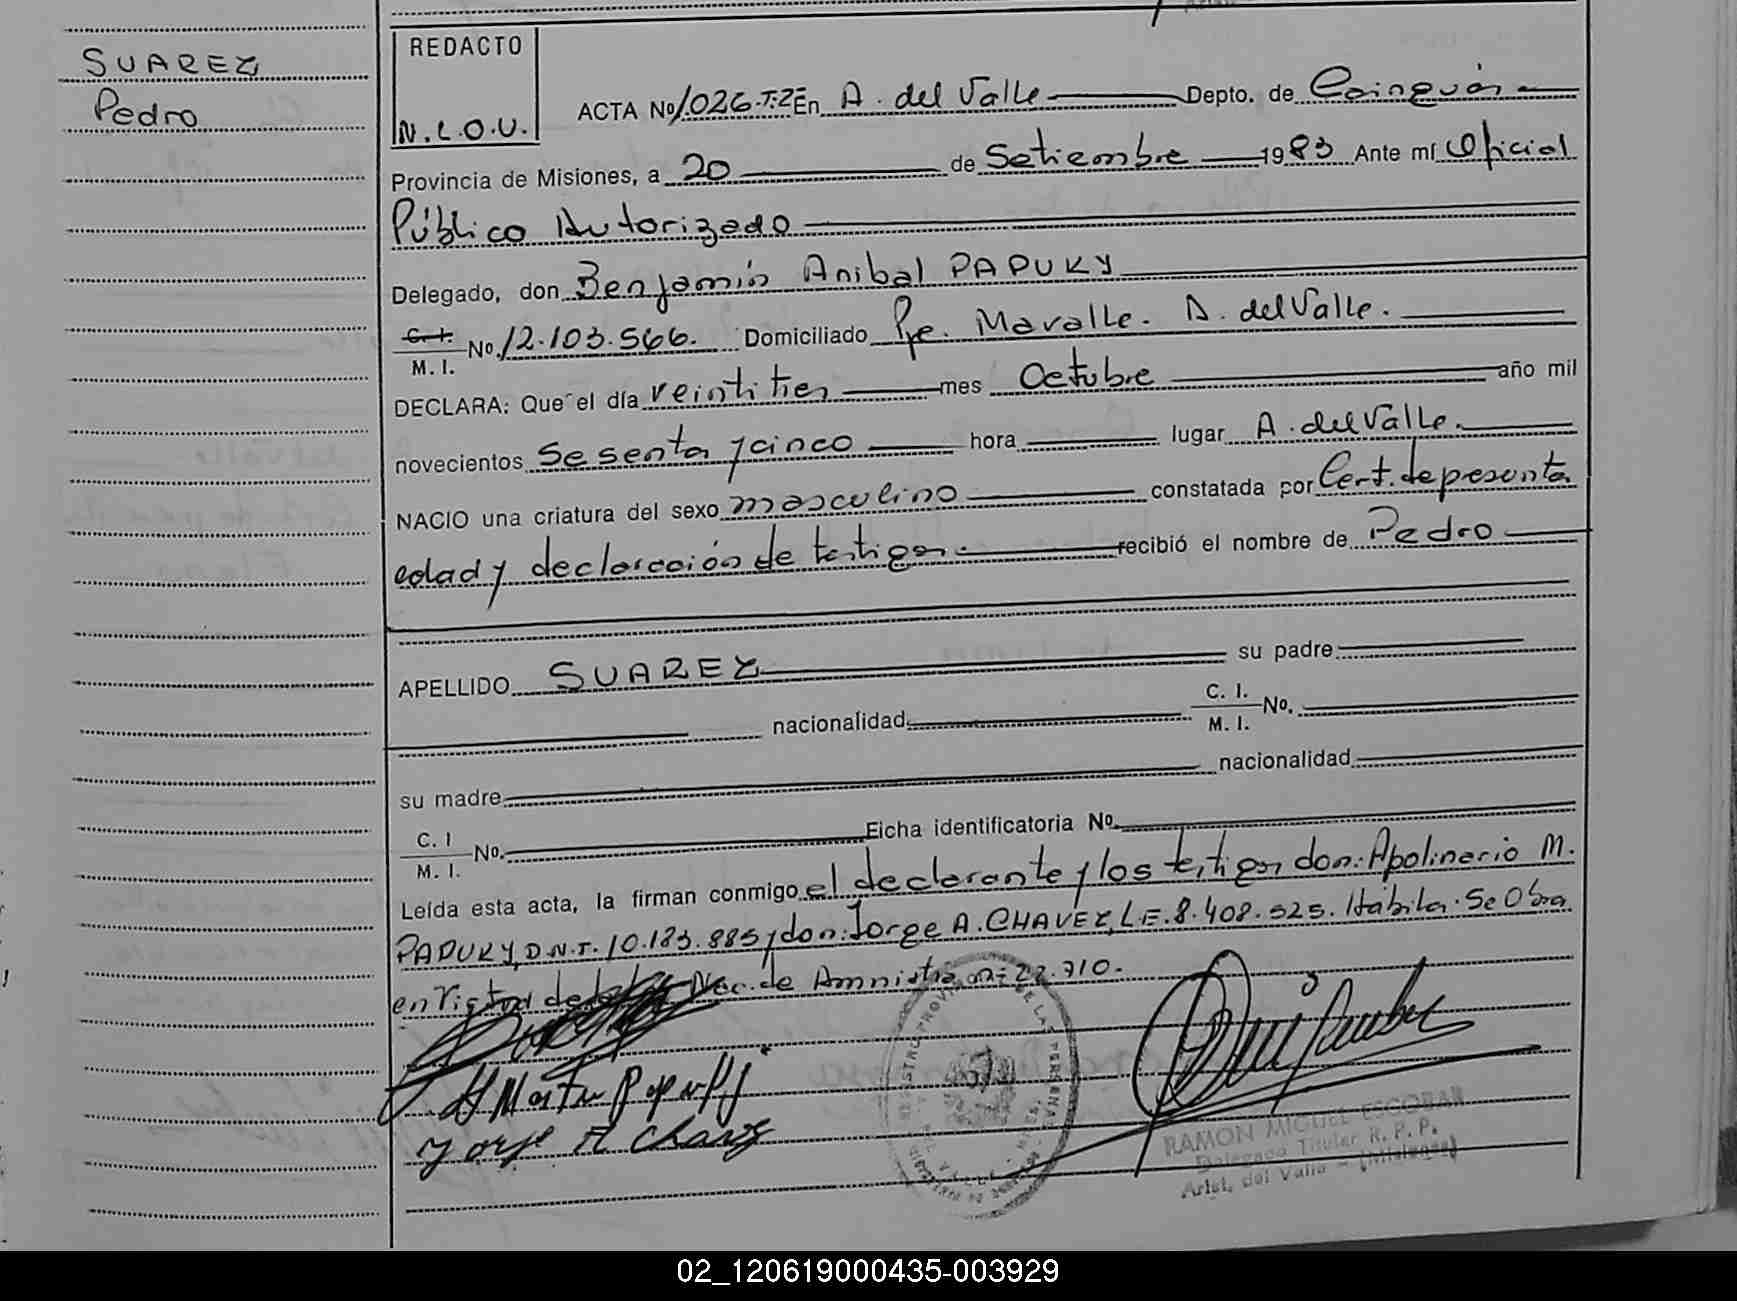 SUAREZ
Pedro
REDACTO
N.L.O.U.
ACTA No 1.026-T:2ª En A. del Valle Depto. de Cainguás
Provincia de Misiones, a 20 de Setiembre 1983 Ante mí Oficial
Público Autorizado
Delegado, don Benjamín Anibal PAPUKY
C. I.
M. I. No. 12.103.566. Domiciliado Pje. Mavalle. A. del Valle.
DECLARA: Que el día veintitres mes Octubre año mil
novecientos sesenta y cinco hora lugar A. del Valle.
NACIO una criatura del sexo masculino constatada por Cert. de presunta
edad y declaración de testigos. recibió el nombre de Pedro
APELLIDO SUAREZ su padre
nacionalidad C. I.
M. I. No.
su madre nacionalidad
C. I
M. I. No. Ficha identificatoria No.
Leída esta acta, la firman conmigo el declarante y los testigos don: Apolinario M.
PAPUKY, D.N.I. 10.183.885 y don: Jorge A. CHAVEZ, L.E. 8.408.525. Hábiles. Se Obra
en de Nac. de Amnistía n: 22.710.
Jorge A Chavez
RAMON MIGUEL ESCOBAR
Delegado Titular R. P. P.
Arist. del Valle - (Misiones)
02_120619000435-003929